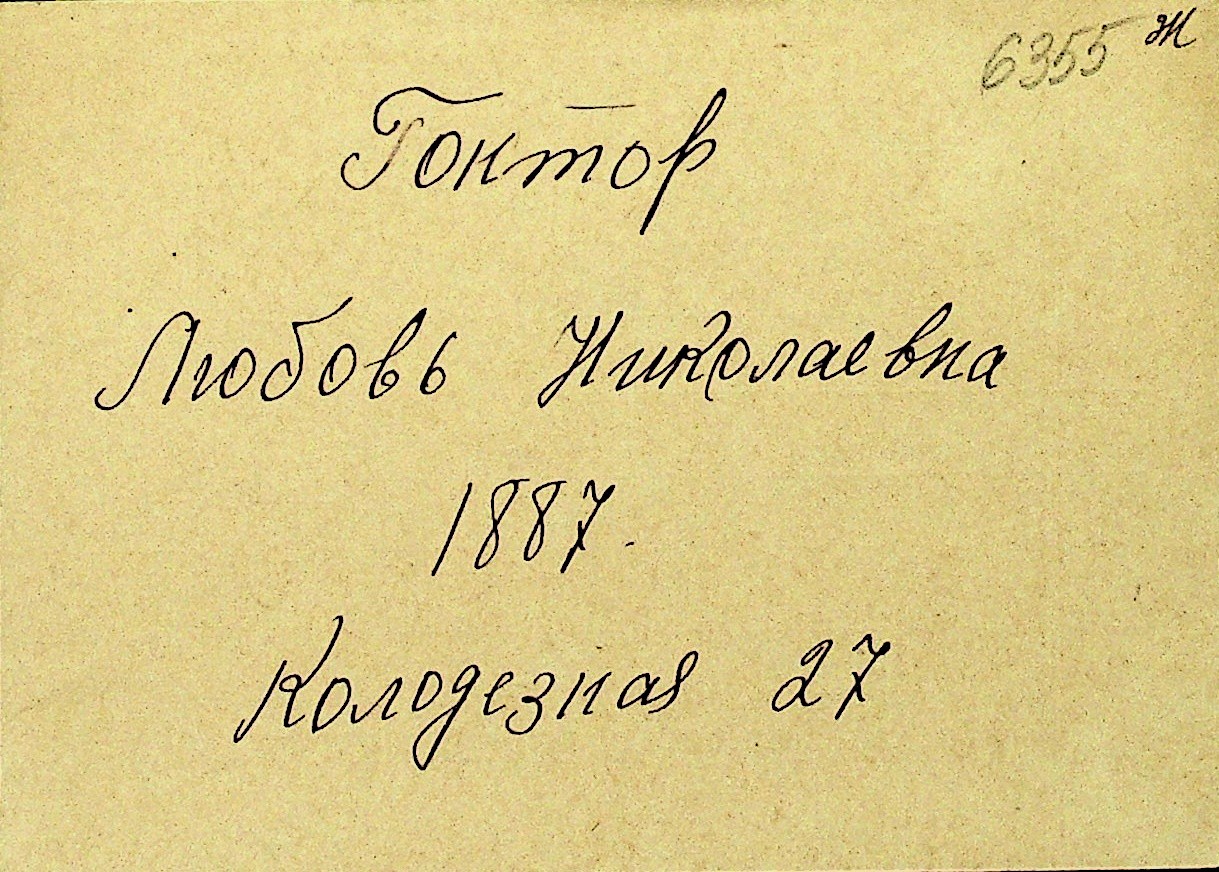 6355 ж
Гоктор
Любовь Николаевна
1887.
Колодезная 27